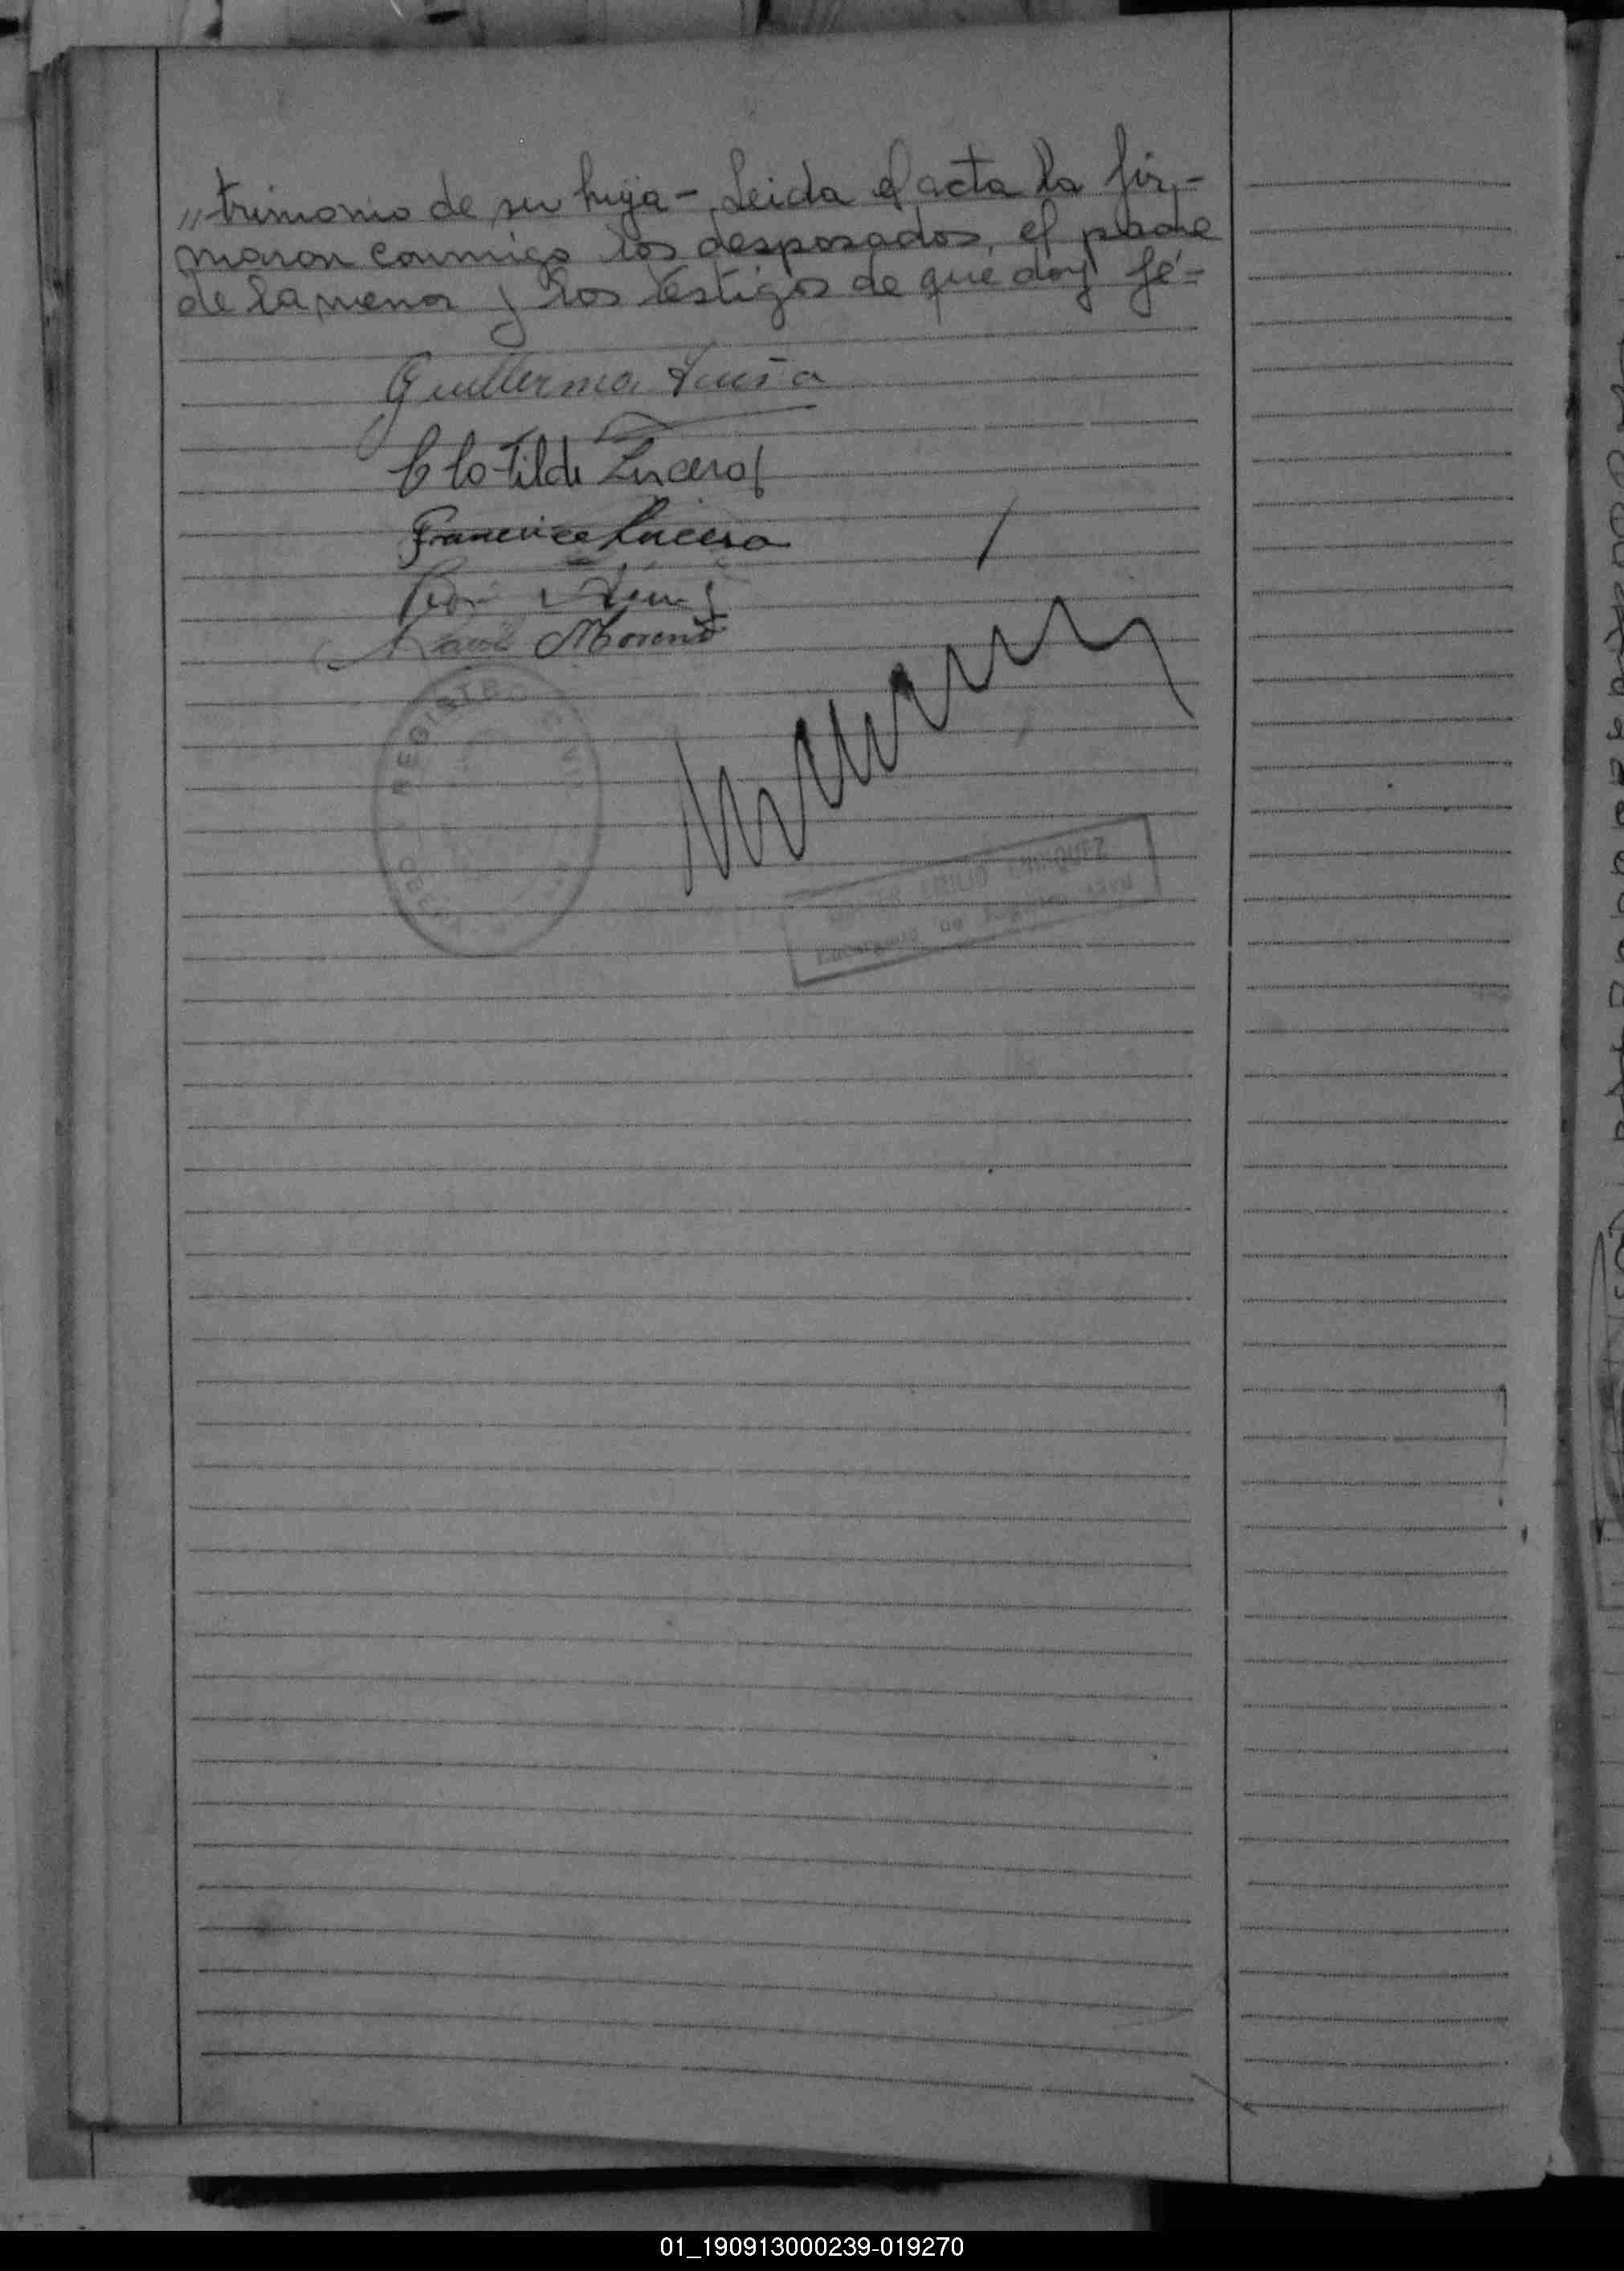 „trimonio de su hija - Leida el acta la fir-
maron conmigo los desposados, el padre
de la menor y los testigos de que doy fé -
Guillermo
Clotilde Lucero
Francisco Lucero
Moreno
REGISTRO CIVIL
EMILIO
Encargado de Registro
01_190913000239-019270